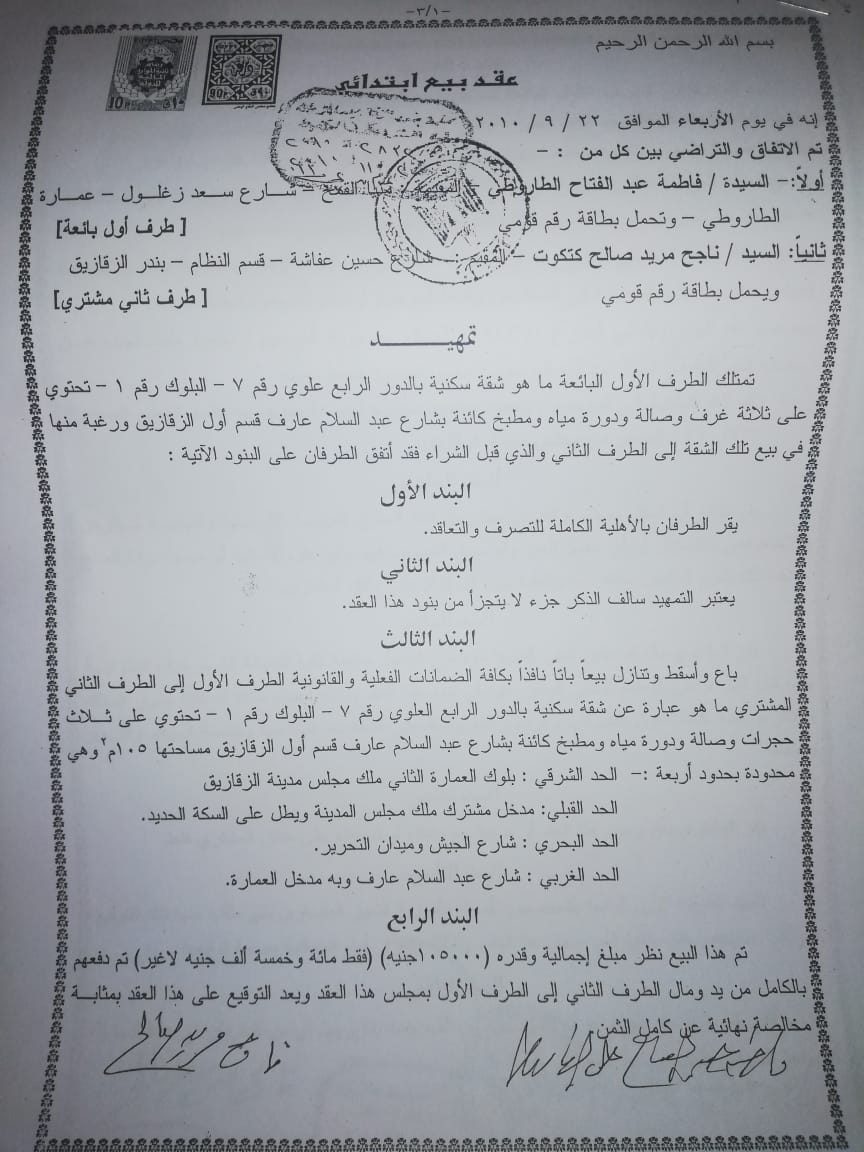 -٣/١-
بسم الله الرحمن الرحيم
عقد بيع ابتدائي
إنه في يوم الأربعاء الموافق ٢٢ / ٩ / ٢٠١٠
تم الاتفاق والتراضي بين كل من : -
أولاً:- السيدة / فاطمة عبد الفتاح الطاروطي - المقيمة / منيا القمح - شارع سعد زغلول - عمارة
الطاروطي - وتحمل بطاقة رقم قومي [ طرف أول بائعة]
ثانياً: السيد / ناجح مريد صالح كتكوت - المقيم : شارع حسين عفاشة - قسم النظام - بندر الزقازيق
ويحمل بطاقة رقم قومي [ طرف ثاني مشتري]
تمهيد
تمتلك الطرف الأول البائعة ما هو شقة سكنية بالدور الرابع علوي رقم ٧ - البلوك رقم ١ - تحتوي
على ثلاثة غرف وصالة ودورة مياه ومطبخ كائنة بشارع عبد السلام عارف قسم أول الزقازيق ورغبة منها
في بيع تلك الشقة إلى الطرف الثاني والذي قبل الشراء فقد أتفق الطرفان على البنود الآتية :
البند الأول
يقر الطرفان بالأهلية الكاملة للتصرف والتعاقد.
البند الثاني
يعتبر التمهيد سالف الذكر جزء لا يتجزأ من بنود هذا العقد.
البند الثالث
باع وأسقط وتنازل بيعاً باتاً نافذاً بكافة الضمانات الفعلية والقانونية الطرف الأول إلى الطرف الثاني
المشتري ما هو عبارة عن شقة سكنية بالدور الرابع العلوي رقم ٧ - البلوك رقم ١ - تحتوي على ثلاث
حجرات وصالة ودورة مياه ومطبخ كائنة بشارع عبد السلام عارف قسم أول الزقازيق مساحتها ١٠٥م٢ وهي
محدودة بحدود أربعة :- الحد الشرقي : بلوك العمارة الثاني ملك مجلس مدينة الزقازيق
الحد القبلي: مدخل مشترك ملك مجلس المدينة ويطل على السكة الحديد.
الحد البحري : شارع الجيش وميدان التحرير.
الحد الغربي : شارع عبد السلام عارف وبه مدخل العمارة.
البند الرابع
تم هذا البيع نظر مبلغ إجمالية وقدره (١٠٥٠٠٠جنيه) (فقط مائة وخمسة ألف جنيه لاغير) تم دفعهم
بالكامل من يد ومال الطرف الثاني إلى الطرف الأول بمجلس هذا العقد ويعد التوقيع على هذا العقد بمثابة
مخالصة نهائية عن كامل الثمن.